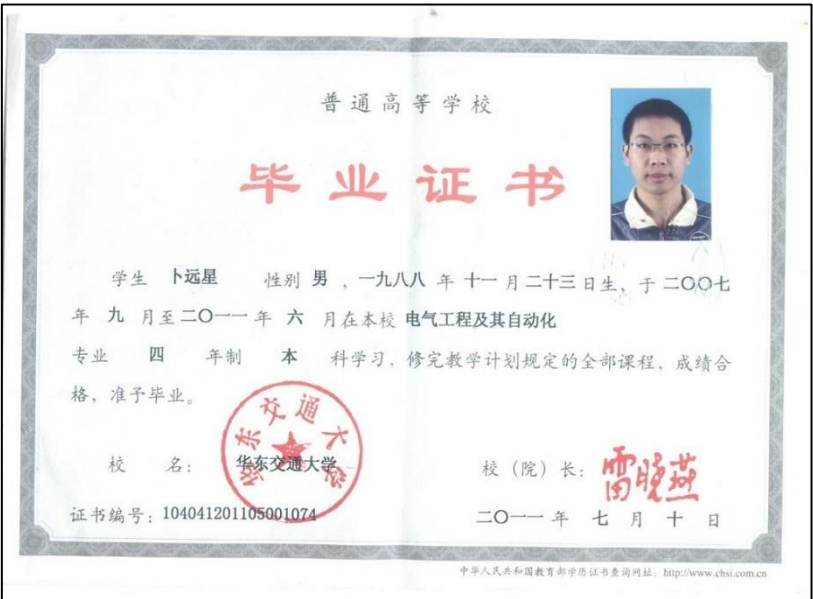 普通高等学校
毕业证书
学生 卜远星 性别 男 ，一九八八 年 十一 月 二十三 日生，于 二〇〇七
年 九 月至 二〇一一 年 六 月在本校 电气工程及其自动化
专业 四 年制 本 科学习，修完教学计划规定的全部课程，成绩合
格，准予毕业。
华东交通大学
校 名： 华东交通大学
校（院）长： 雷晓燕
证书编号：104041201105001074
二〇一一 年 七 月 十 日
中华人民共和国教育部学历证书查询网址：http://www.chsi.com.cn